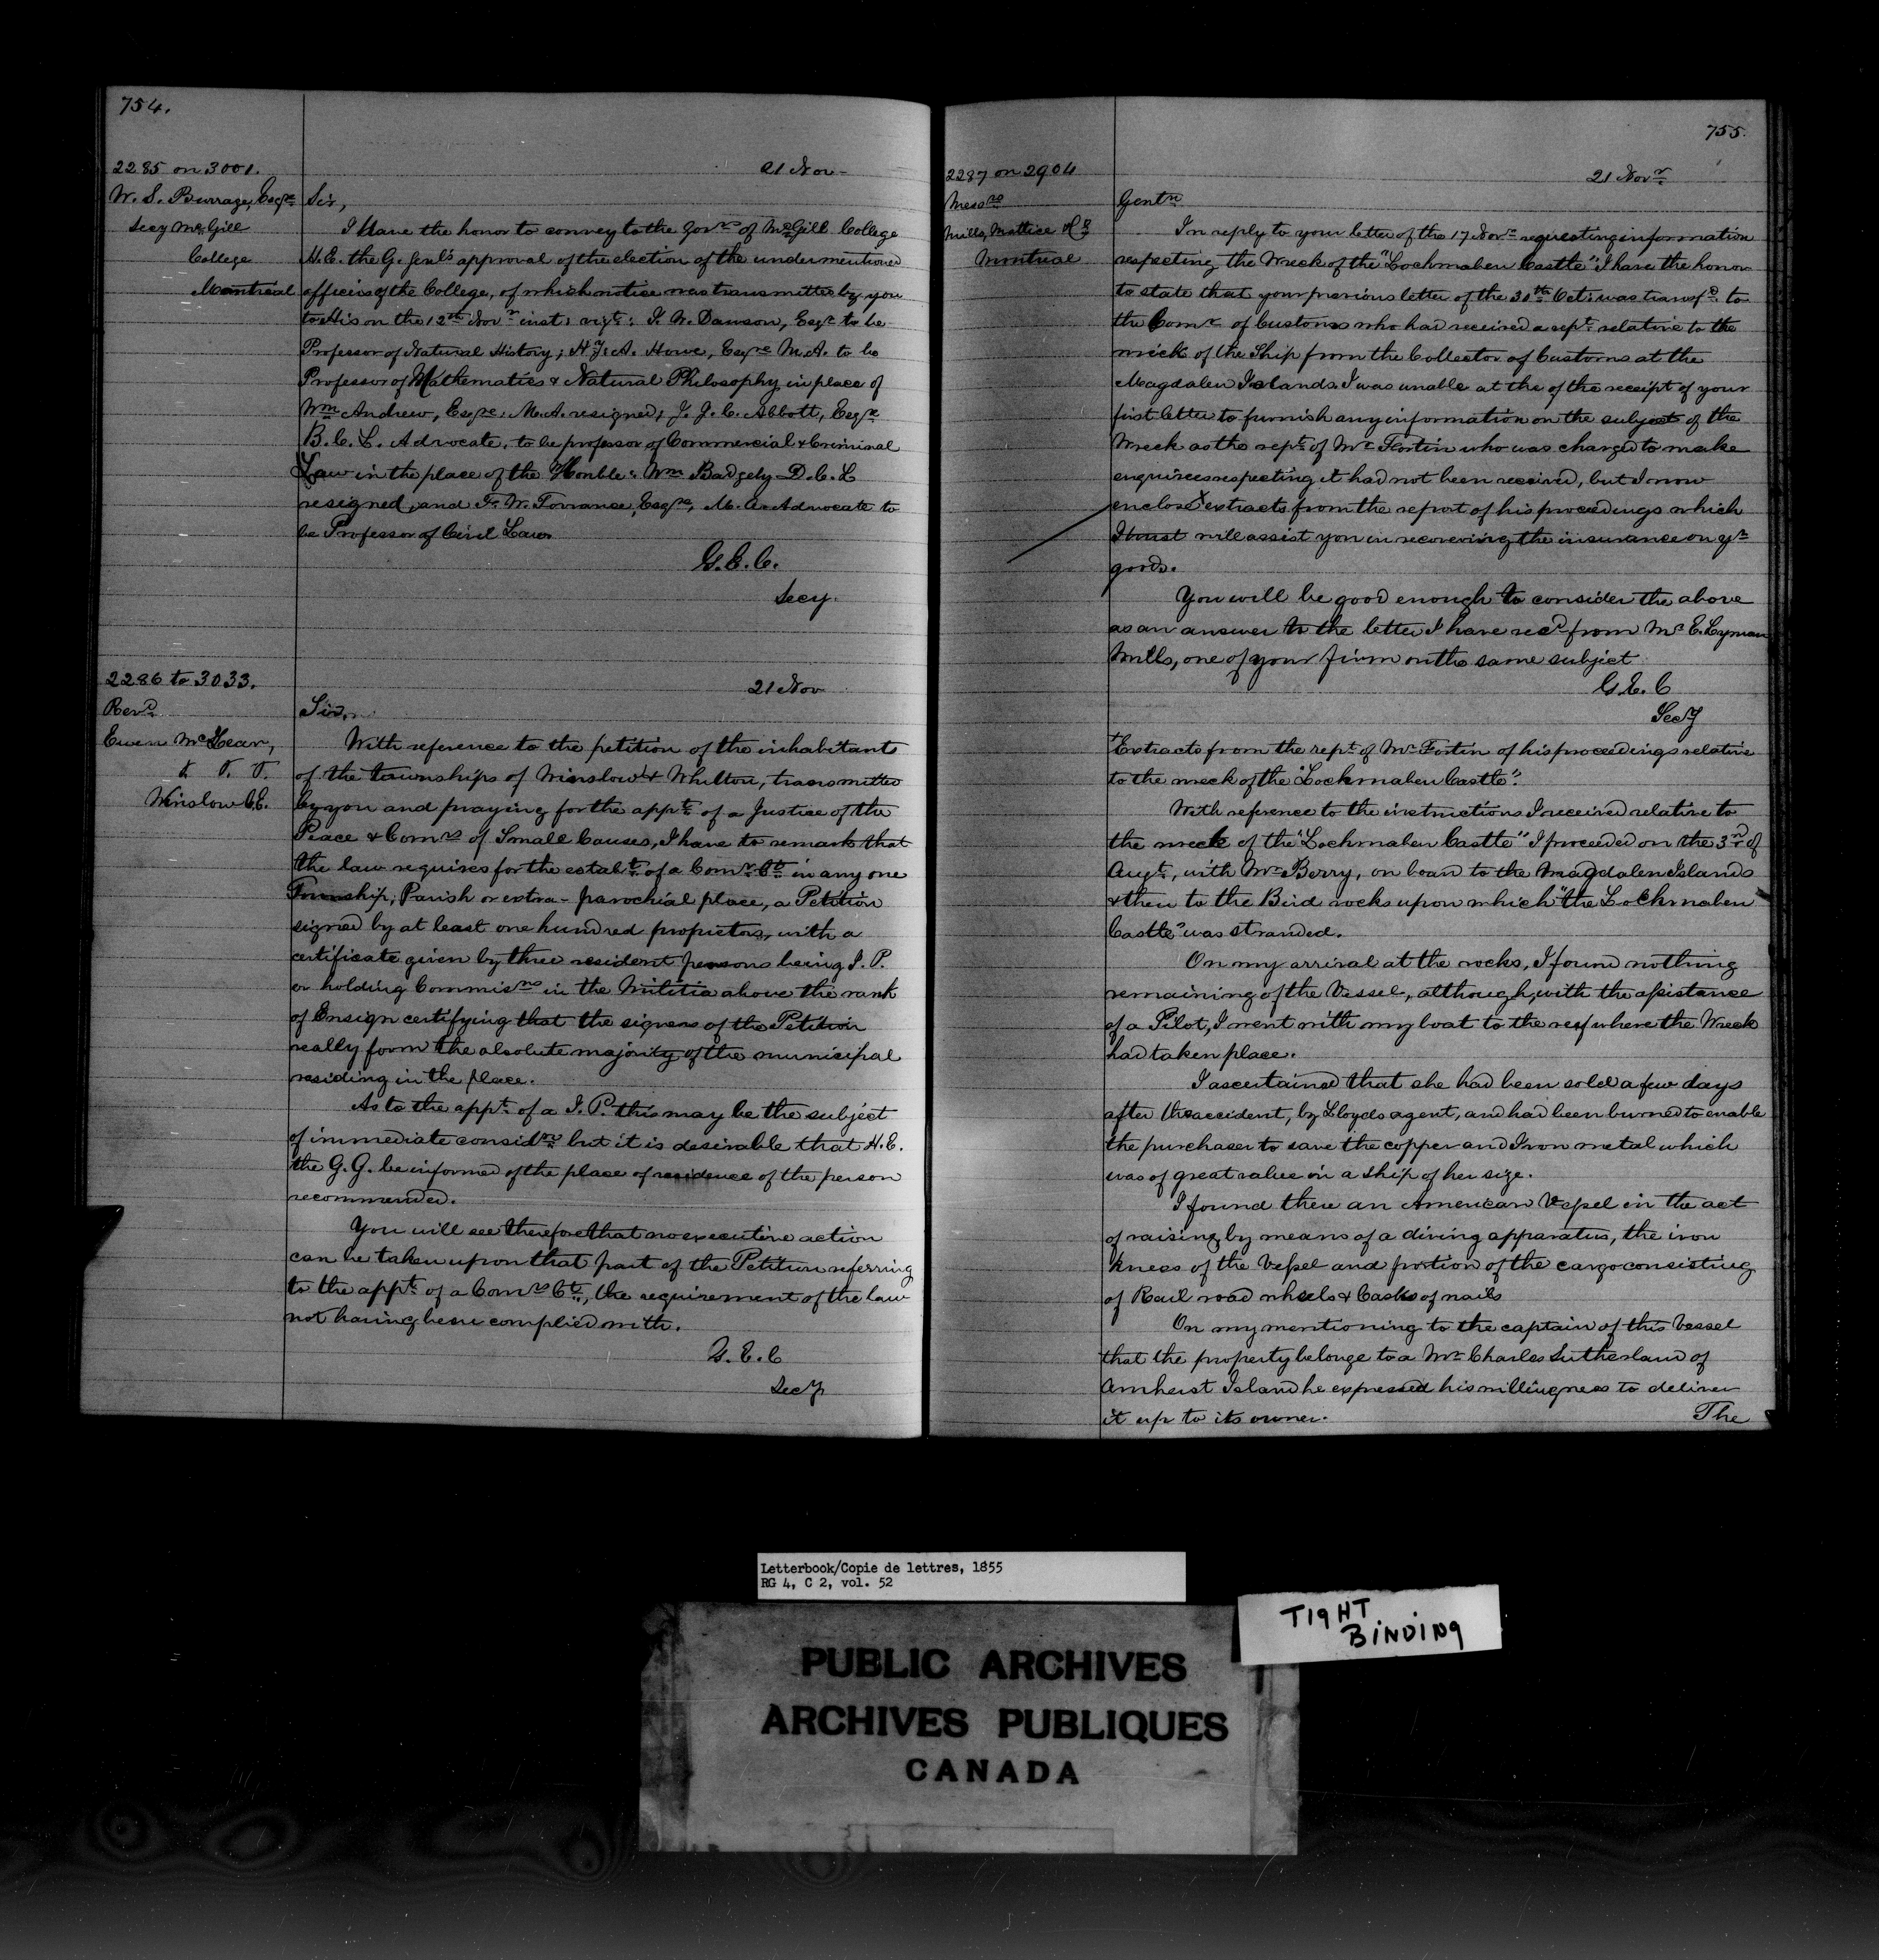 754.
2285 on 3001.
21 Nov
W. S. Burrage, Esqre
Secy McGill
College
Montreal
Sir,
I have the honor to convey to the Govrs of McGill College
H.E. the G. Genl's approval of the election of the undermentioned
officers of the College, of which notice was transmitted by you
to His on the 12th Novr inst: vizt: J. W. Dawson, Esqr to be
Professor of Natural History; H. A. Howe, Esqre M.A. to be
Professor of Mathematics & Natural Philosophy in place of
Wm Andrew, Esqre, M.A. resigned; J. J. C. Abbott, Esqre
B.C.L. Advocate, to be professor of Commercial & Criminal
Law in the place of the Honble: Wm Badgely D.C.L
resigned, and F. W. Torrance, Esqre, M.A. Advocate to
be Professor of Civil Law
G.E.C.
Secy.
2286 to 3033.
21 Nov
Revd
Ewen McLean,
&. &. &.
Winslow C.E.
Sir,
With reference to the petition of the inhabitants
of the townships of Winslow & Whitton, transmitted
by you and praying for the appt of a Justice of the
Peace & Comrs of Small Causes, I have to remark that
the law requires for the establt of a Comrs Ct in any one
Township, Parish or extra-parochial place, a Petition
signed by at least one hundred proprietors, with a
certificate given by three resident persons being J.P.
or holding Commisns in the Militia above the rank
of Ensign certifying that the signers of the Petition
really form the absolute majority of the municipal
residing in the place.
As to the appt of a J.P. this may be the subject
of immediate considn but it is desirable that H.E.
the G.G. be informed of the place of residence of the person
recommended.
You will see therefore that no executive action
can be taken upon that part of the Petition referring
to the appt of a Comrs Ct, the requirement of the law
not having been complied with.
G.E.C
Secy
755.
2287 on 2904
21 Novr
Messrs
Mills, Mattice & Co
Montreal
Gentn
In reply to your letter of the 17 Novr requesting information
respecting the Wreck of the "Lochmaben Castle" I have the honor
to state that your previous letter of the 31th Oct: was transfd to
the Comr of Customs who had received a rept relative to the
wreck of the Ship from the Collector of Customs at the
Magdalen Islands. I was unable at the of the receipt of your
first letter to furnish any information on the subject of the
Wreck as the rept of Mr Fortin who was charged to make
enquiries respecting it had not been received, but I now
enclose x extracts from the report of his proceedings which
I trust will assist you in recovering the insurance on yr
goods.
You will be good enough to consider the above
as an answer to the letter I have recd from Mr E. Lyman
Mills, one of your firm on the same subject
G.E.C
Secy
+Extracts from the rept of Mr Fortin of his proceedings relative
to the wreck of the "Lochmaben Castle".
With reference to the instructions I received relative to
the wreck of the "Lochmaben Castle" I proceeded on the 3rd of
Augt, with Mr Berry, on board to the Magdalen Islands
& then to the Bird rocks upon which "the Lochmaben
Castle" was stranded.
On my arrival at the rocks, I found nothing
remaining of the Vessel, although, with the assistance
of a Pilot, I went with my boat to the reef where the Wreck
had taken place.
I ascertained that she had been sold a few days
after the accident, by Lloyds agent, and had been burned to enable
the purchaser to save the copper and Iron metal which
was of great value in a ship of her size.
I found there an American Vessel in the act
of raising by means of a diving apparatus, the iron
knees of the Vessel and portion of the cargo consisting
of Rail road wheels & Casks of nails
On my mentioning to the captain of this Vessel
that the property belonge to a Mr Charles Sutherland of
Amherst Island he expressed his willingness to deliver
it up to its owner.
The
Letterbook/Copie de lettres, 1855
RG 4, C 2, vol. 52
TIGHT
BINDING
PUBLIC ARCHIVES
ARCHIVES PUBLIQUES
CANADA